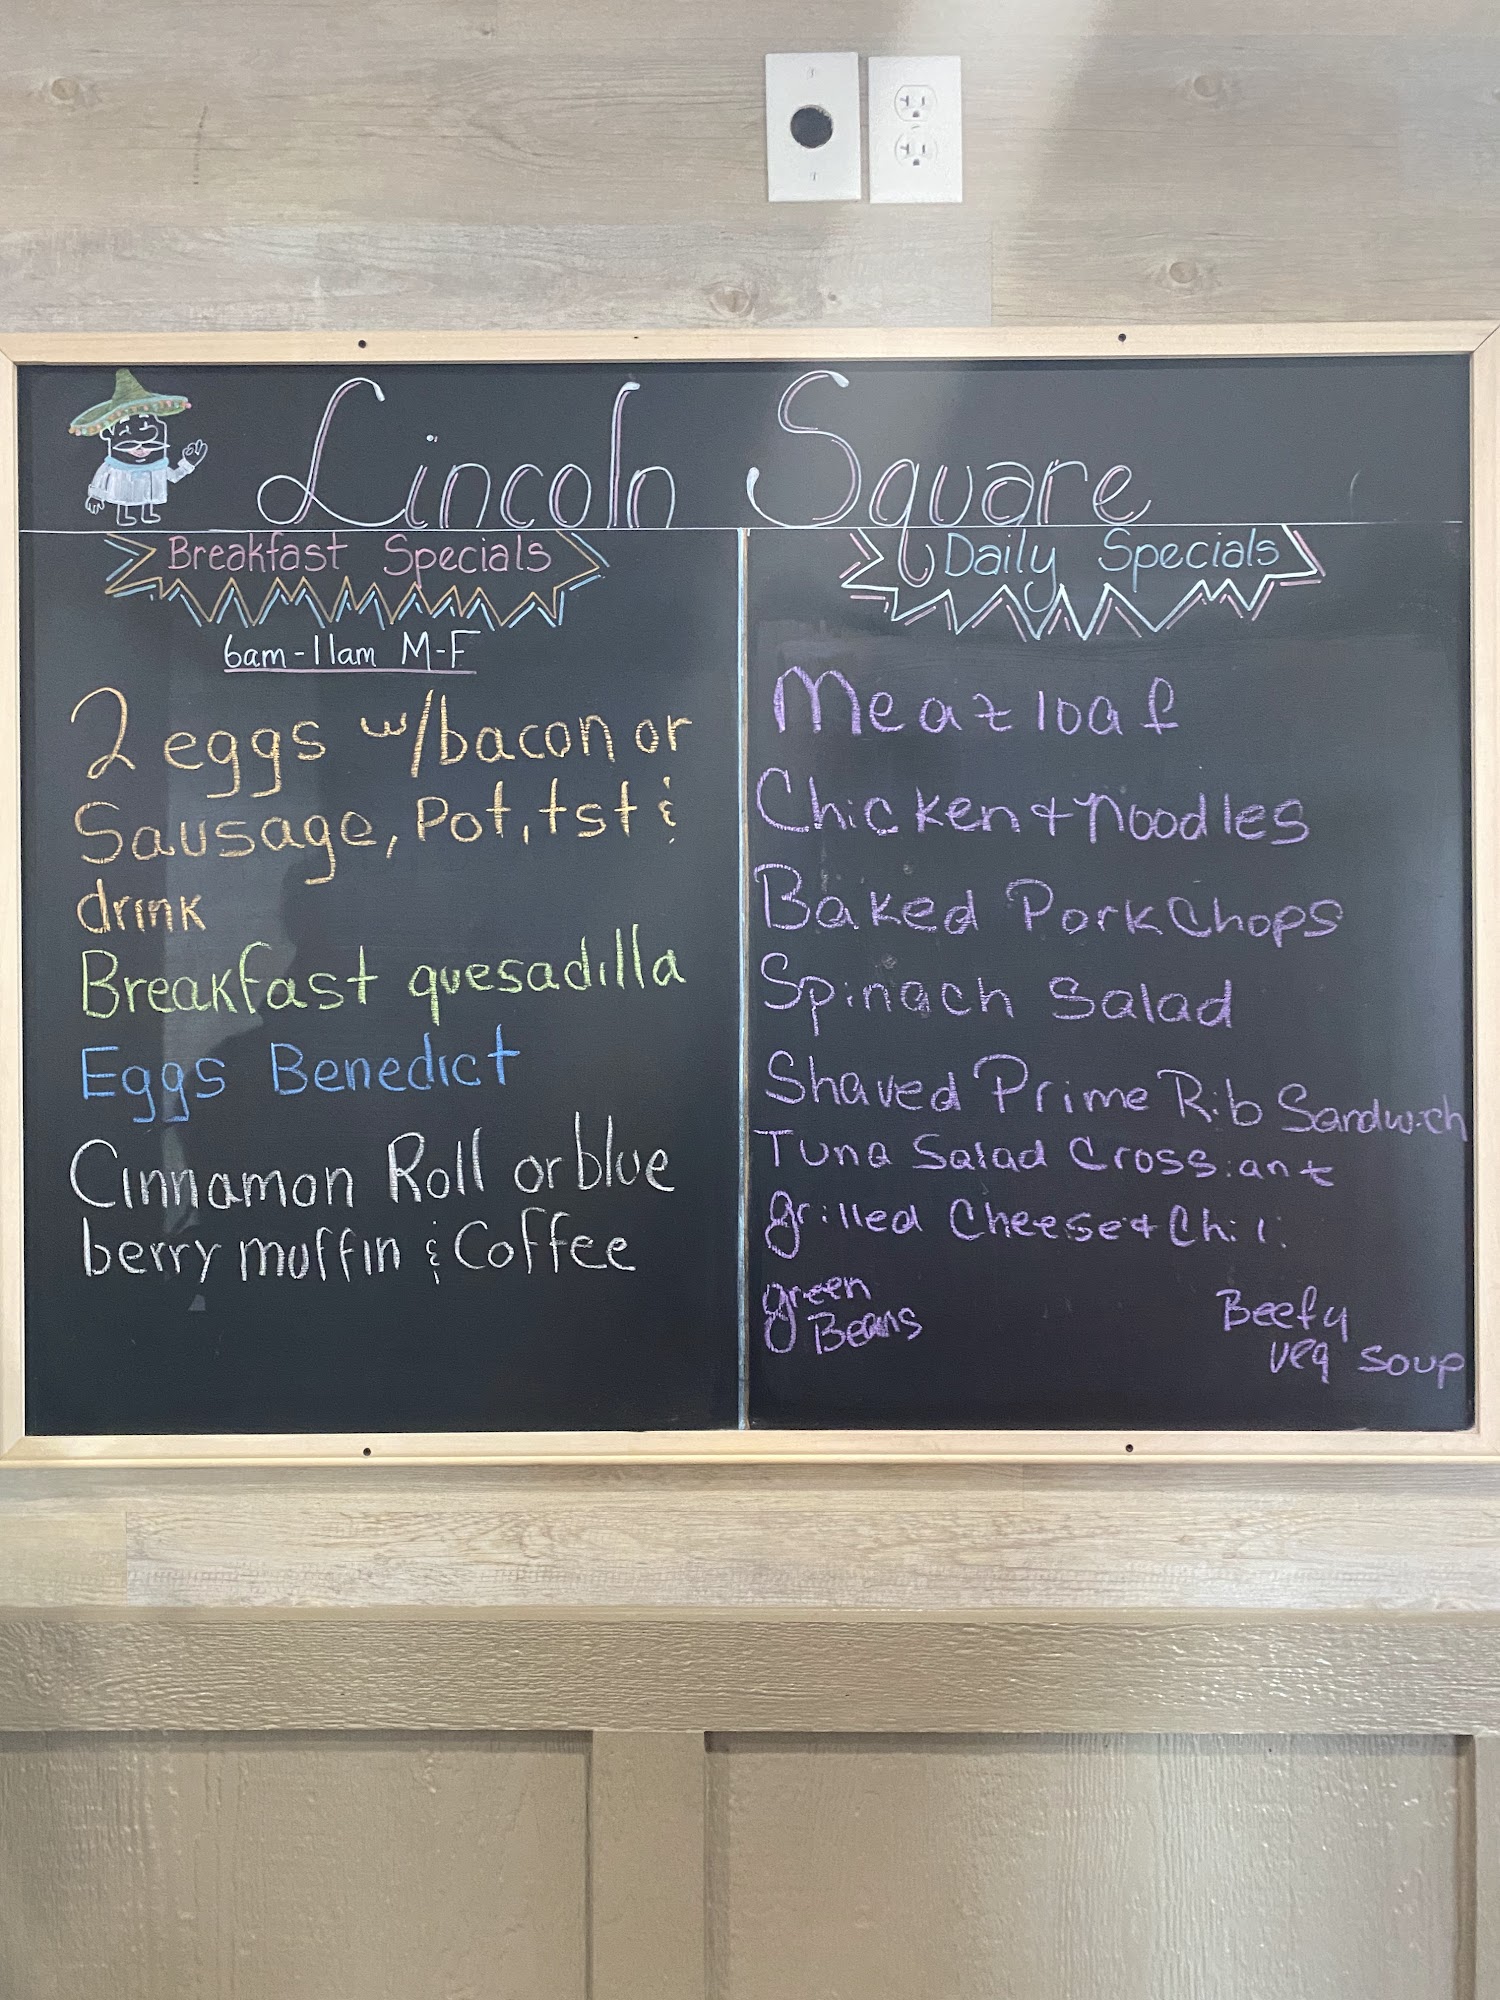 Lincoln Square
Breakfast Specials
6am-11am M-F
2 eggs w/bacon or
Sausage, Pot, tst &
drink
Breakfast quesadilla
Eggs Benedict
Cinnamon Roll or blue
berry muffin & Coffee
Daily Specials
Meatloaf
Chicken + Noodles
Baked Pork Chops
Spinach Salad
Shaved Prime Rib Sandwich
Tuna Salad Crossiant
grilled Cheese + Chili
green
Beans
Beefy
veg soup